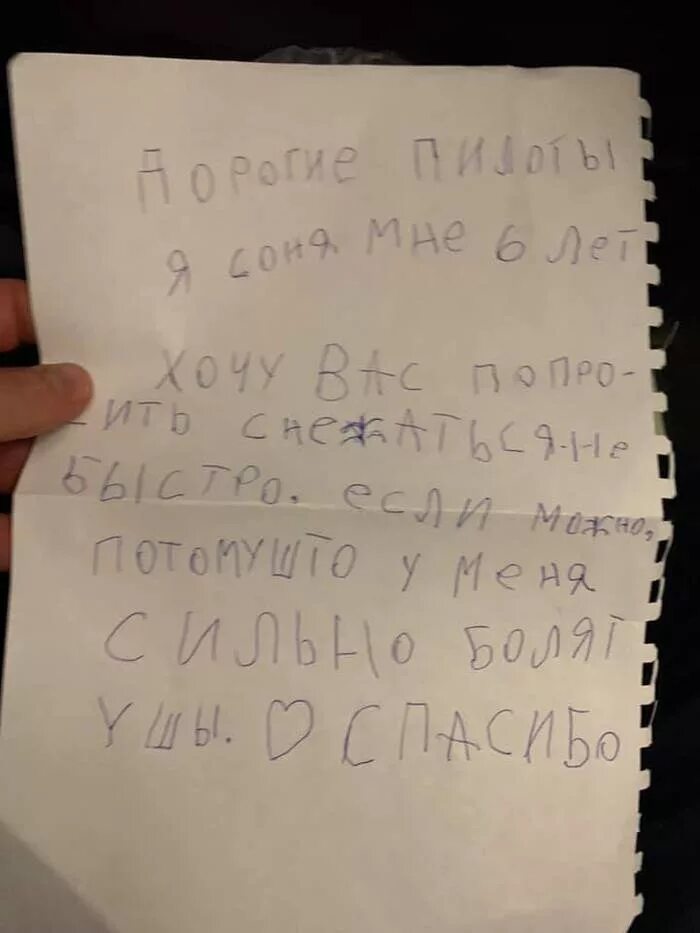 Дорогие пилоты
я соня мне 6 лет
хочу ВАС попро-
сить снежаться-не
быстро. если можно,
потомушто у меня
сильно болят
ушы. ♡ спасибо